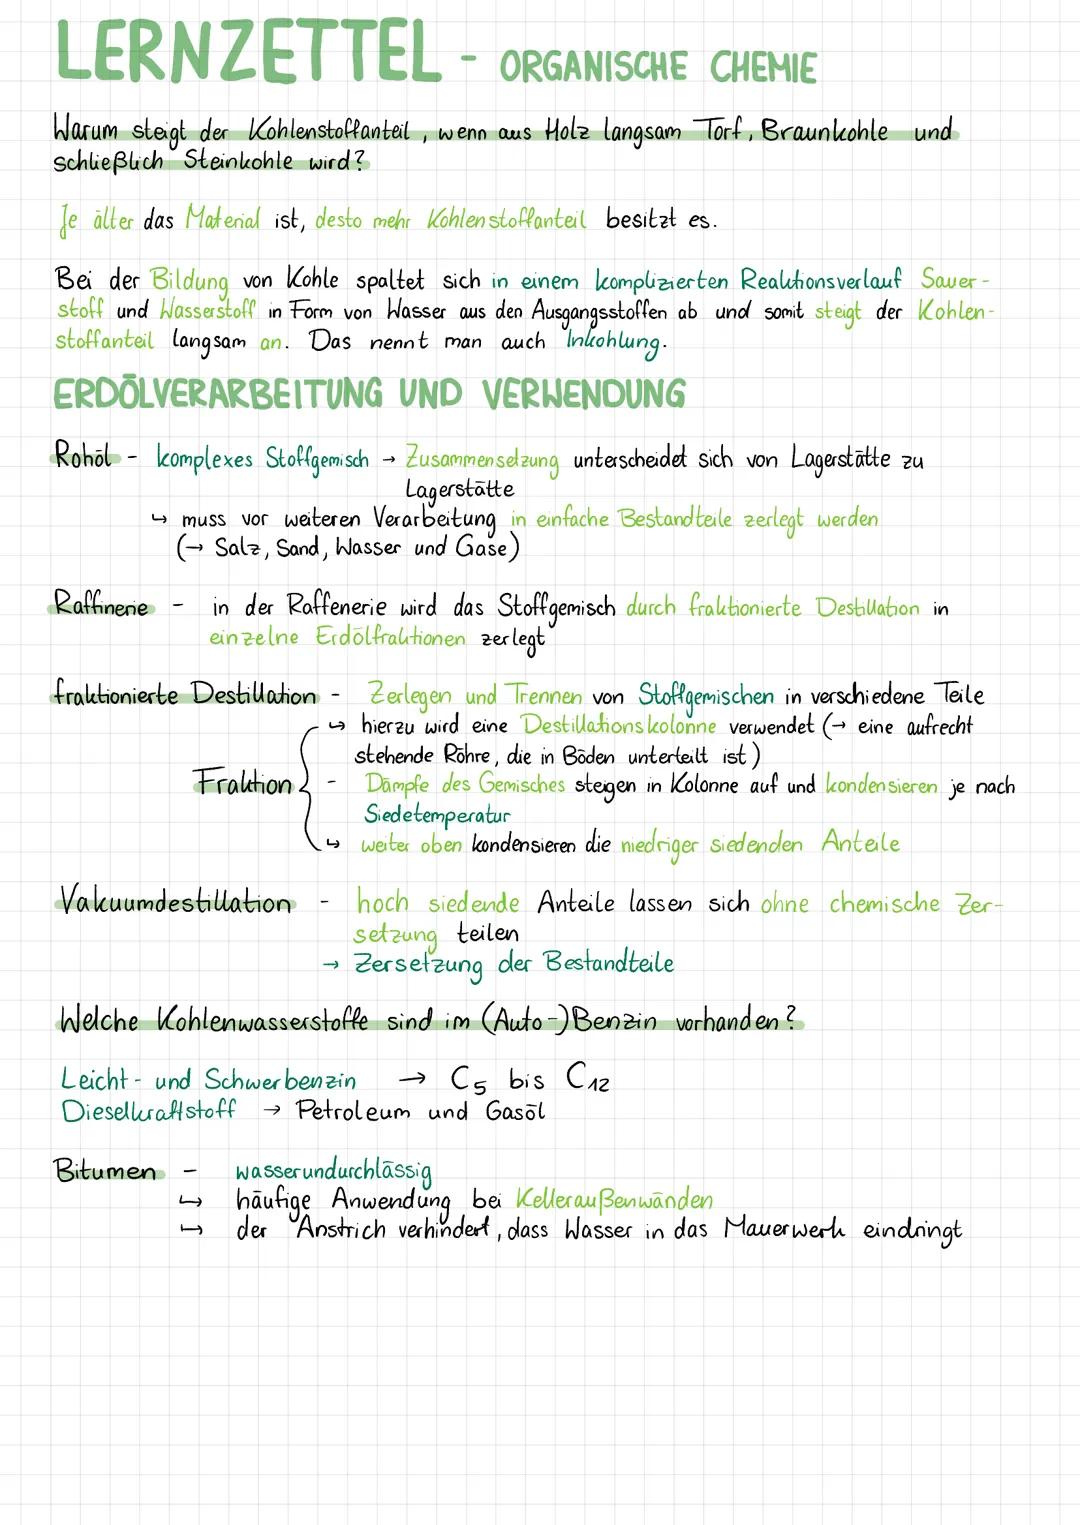 LERNZETTEL - ORGANISCHE CHEMIE
Warum steigt der Kohlenstoffanteil, wenn aus Holz langsam Torf, Braunkohle und
schließlich Steinkohle wird?
Je älter das Material ist, desto mehr Kohlenstoffanteil besitzt es.
Bei der Bildung von Kohle spaltet sich in einem komplizierten Reaktionsverlauf Sauer-
stoff und Wasserstoff in Form von Wasser aus den Ausgangsstoffen ab und somit steigt der Kohlen-
stoffanteil langsam an. Das nennt man auch Inkohlung.
ERDÖLVERARBEITUNG UND VERWENDUNG
Rohöl - komplexes Stoffgemisch → Zusammensetzung unterscheidet sich von Lagerstätte zu
Lagerstätte
↳ muss vor weiteren Verarbeitung in einfache Bestandteile zerlegt werden
(→ Salz, Sand, Wasser und Gase)
Raffinerie - in der Raffenerie wird das Stoffgemisch durch fraktionierte Destillation in
einzelne Erdölfraktionen zerlegt
fraktionierte Destillation - Zerlegen und Trennen von Stoffgemischen in verschiedene Teile
↳ hierzu wird eine Destillationskolonne verwendet (→ eine aufrecht
stehende Röhre, die in Böden unterteilt ist)
Fraktion { - Dämpfe des Gemisches steigen in Kolonne auf und kondensieren je nach
Siedetemperatur
↳ weiter oben kondensieren die niedriger siedenden Anteile
Vakuumdestillation - hoch siedende Anteile lassen sich ohne chemische Zer-
setzung teilen
→ Zersetzung der Bestandteile
Welche Kohlenwasserstoffe sind im (Auto-)Benzin vorhanden?
Leicht- und Schwerbenzin → C5 bis C12
Dieselkraftstoff → Petroleum und Gasöl
Bitumen - wasserundurchlässig
↳ häufige Anwendung bei Kelleraußenwänden
↳ der Anstrich verhindert, dass Wasser in das Mauerwerk eindringt